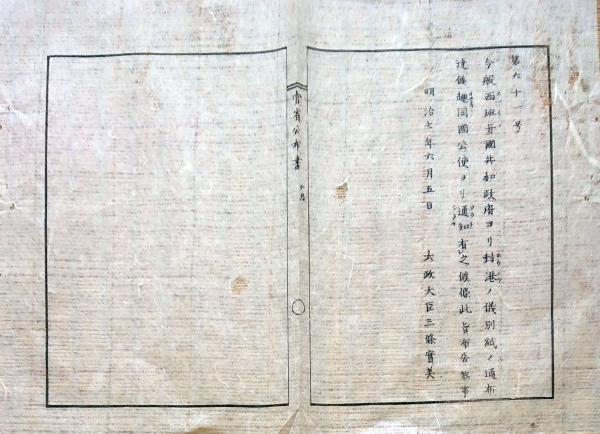 第六十一号
今般西班牙國共和政府ヨリ封港ノ儀別紙ノ通布
達候趣同國公使ヨリ通知有之候條此旨布告候事
明治七年六月五日 太政大臣三條實美
官省公布書 六月